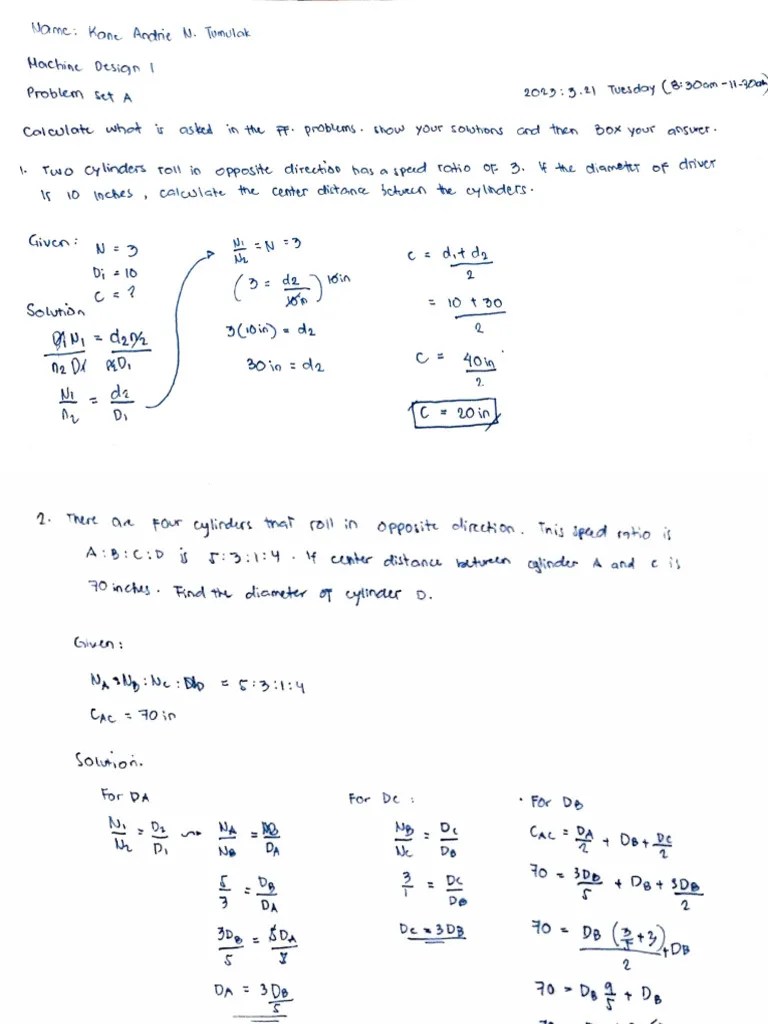 Name: Kane Andrie N. Tumulak
Machine Design 1
Problem Set A
2023.3.21 Tuesday (8:30am-11:30am)
Calculate what is asked in the ff. problems. Show your solutions and then Box your answer.
1. Two cylinders roll in opposite direction has a speed ratio of 3. If the diameter of driver
is 10 inches, calculate the center distance between the cylinders.
Given: N = 3
D1 = 10
C = ?
Solution
D1N1 = d2n2
n2D1 n2D1
N1/n2 = d2/D1
N1/N2 = N = 3
(3 = d2/10in) 10in
3(10in) = d2
30in = d2
C = d1+d2/2
= 10+30/2
C = 40in/2
C = 20in
2. There are four cylinders that roll in opposite direction. This speed ratio is
A:B:C:D is 5:3:1:4. If center distance between cylinder A and C is
70 inches. Find the diameter of cylinder D.
Given:
NA:NB:NC:ND = 5:3:1:4
CAC = 70in
Solution.
For DA
N1/N2 = D2/D1 NA/NB = DB/DA
5/3 = DB/DA
3DB/5 = 5DA/5
DA = 3DB/5
For DC:
NB/NC = DC/DB
3/1 = DC/DB
DC = 3DB
• For DB
CAC = DA/2 + DB + DC/2
70 = 3DB/5 + DB + 3DB/2
70 = DB (3/5+3)/2 + DB
70 = DB 9/5 + DB